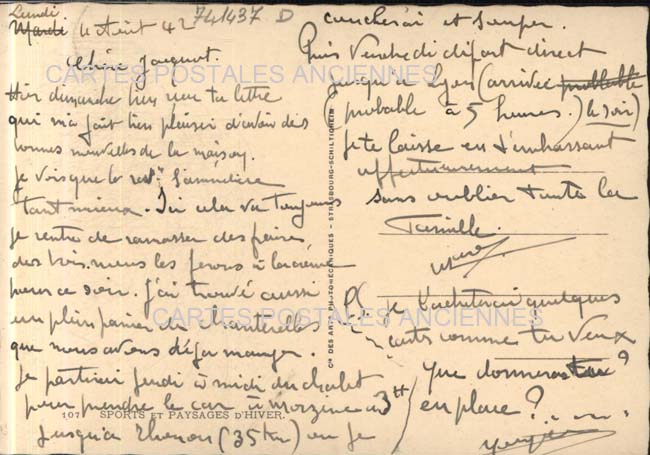 Lundi
Mardi 4 Août 42 741437 D
Chère Jacquot.
Hier dimanche bien reçu ta lettre
qui m'a fait bien plaisir d'avoir des
bonnes nouvelles de la maison.
Je vois que le rest. s'améliore
tant mieux. Ici cela va toujours
je rentre de ramasser des
des bois. nous les ferons à la crème
pour ce soir. J'ai trouvé aussi
un plein panier de chanterelles
que nous avons déja manger.
Je partirai Jeudi à midi du chalet
pour prendre le car à Morzine
jusqu'à Thonon (35 km) ou je
107 SPORTS ET PAYSAGES D'HIVER.
Cie DES ARTS PHOTOMÉCANIQUES - STRASBOURG-SCHILTIGHEIM
coucherai et souper.
Puis Vendredi départ direct
jusqu'a Lyon (arrivée probable
(probable à 5 heures.) le soir)
Je te laisse en t'embrassant
affectueusement
sans oublier toute la
famille.
PS. je t'achèterai quelques
carts comme tu veux
que donneras tu?
en place?
CARTES POSTALES ANCIENNES
CARTES POSTALES ANCIENNES